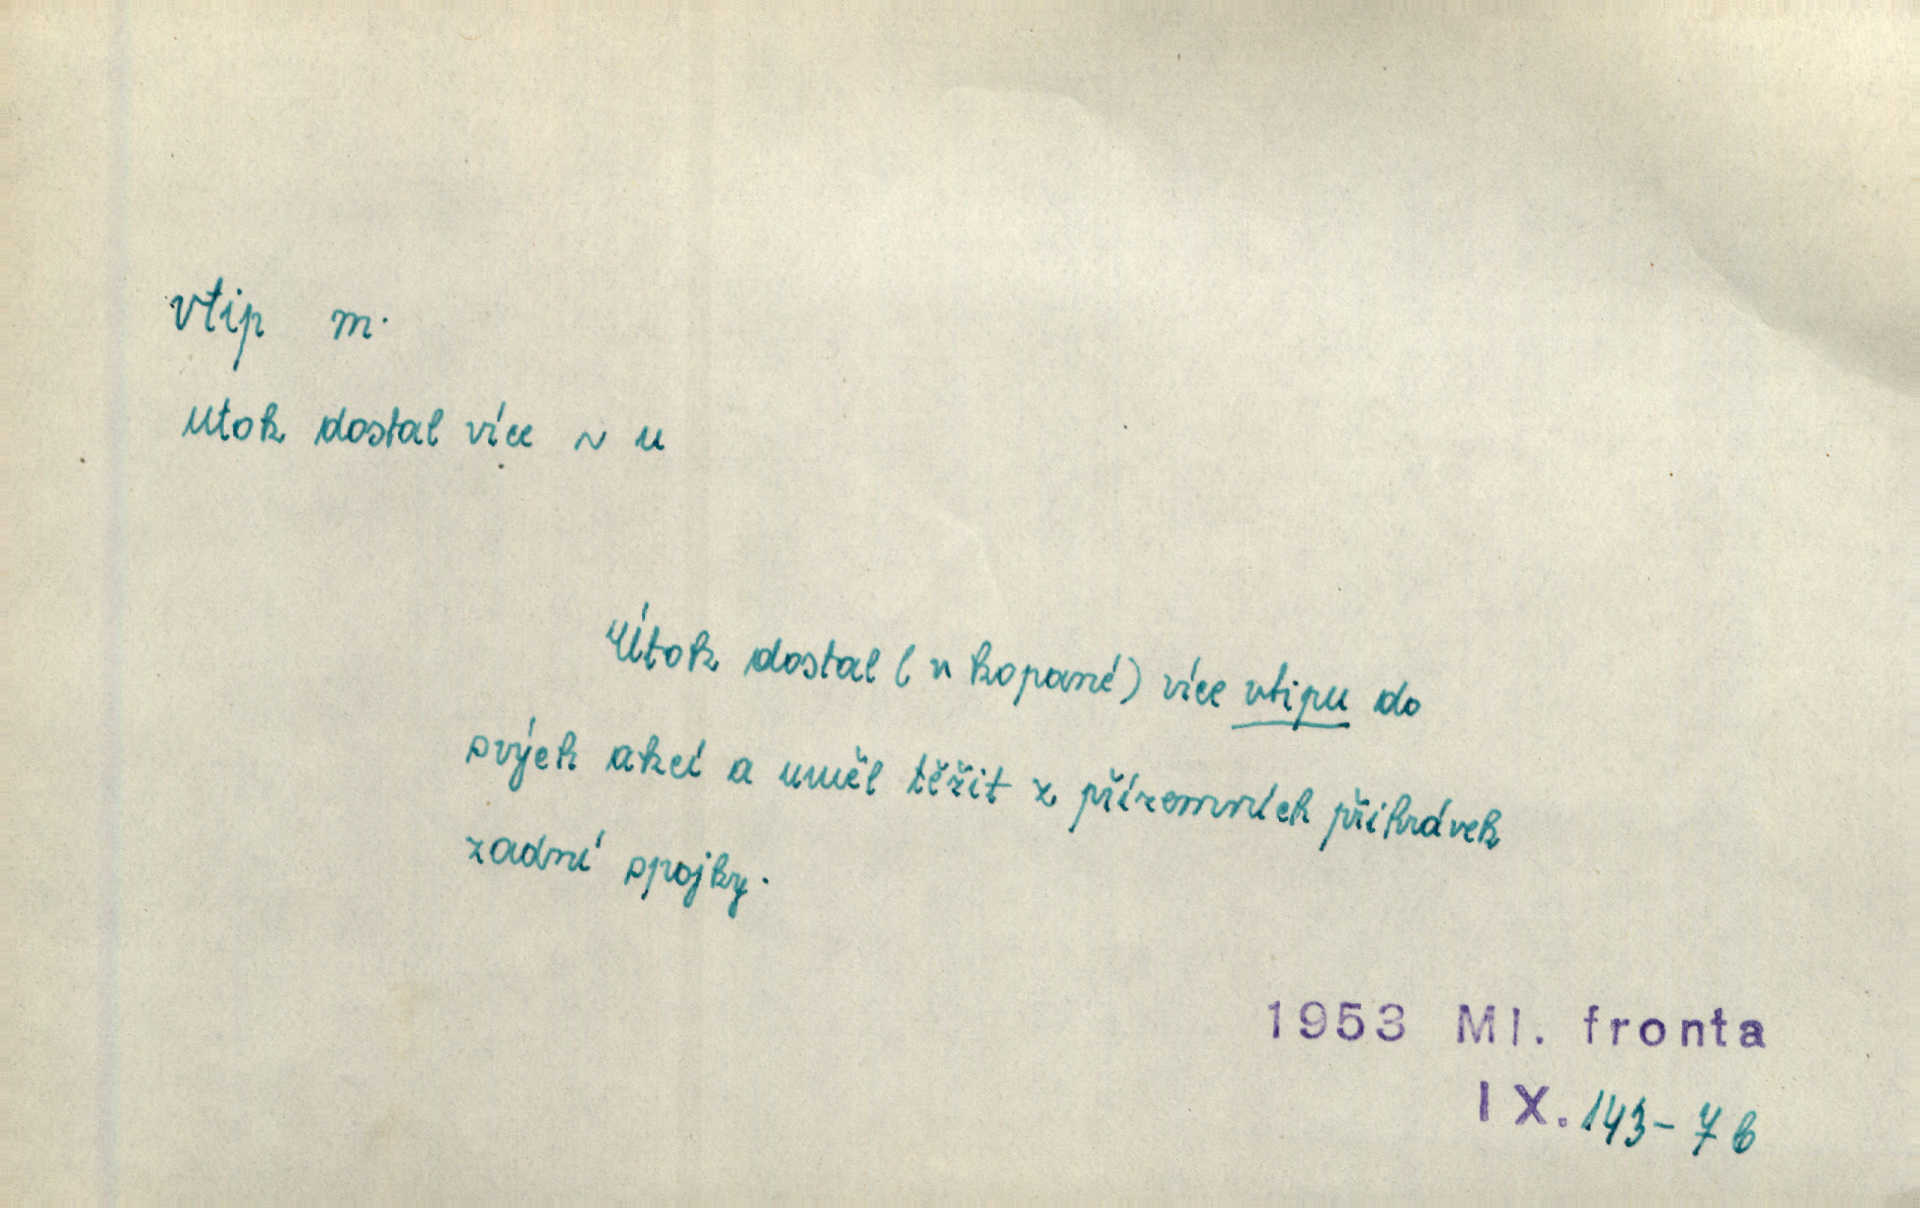 vtip m.
Utok dostal více ~ u
Útok dostal (v kopané) více vtipu do
svých akcí a uměl těžit z přízemních přihrávek
zadní spojky.
1953 Ml. fronta
IX. 143-7b